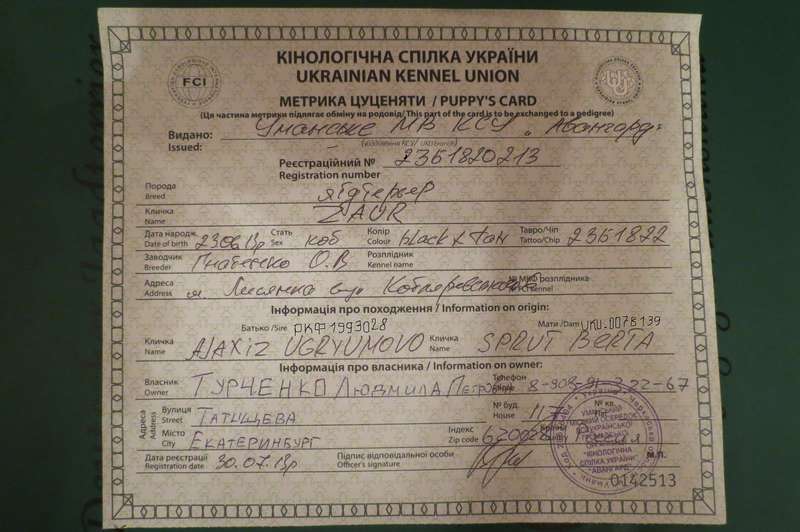 КІНОЛОГІЧНА СПІЛКА УКРАЇНИ
UKRAINIAN KENNEL UNION
FCI
МЕТРИКА ЦУЦЕНЯТИ / PUPPY'S CARD
(Ця частина метрики підлягає обміну на родовід/ This part of the card is to be exchanged to a pedigree)
Видано: Уманське МВ КСУ „Авангард"
Issued: (відділення КСУ/ UKU branch)
Реєстраційний № 23Б1820213
Registration number
Порода ягдтерьер
Breed
Кличка ZAUR
Name
Дата народж. 23.06.13р Стать коб Колір black & tan Тавро/Чіп 23Б1822
Date of birth Sex Colour Tattoo/Chip
Заводчик О.В Розплідник
Breeder Kennel name
№ МКФ розплідника
Адреса м. Лисянка
Address
Інформація про походження / Information on origin:
Батько /Sire РКФ1993028 Мати /Dam UKU.0078139
Кличка AJAXIZ UGRYUMOVO Кличка SPRUT BERTA
Name Name
Інформація про власника / Information on owner:
Власник ТУРЧЕНКО ЛЮДМИЛА Телефон 22-67
Owner
Адреса Вулиця ТАТИЩЕВА № буд. № кв.
Address Street House
Місто ЕКАТЕРИНБУРГ Індекс
City Zip code
Дата реєстрації 30.07.13р Підпис відповідальної особи М.П.
Registration date Officer's signature
"КІНОЛОГІЧНА
СПІЛКА УКРАЇНИ"
"АВАНГАРД"
0142513